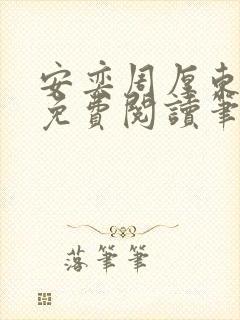 安奕周厘東
免費閱讀筆
落筆筆